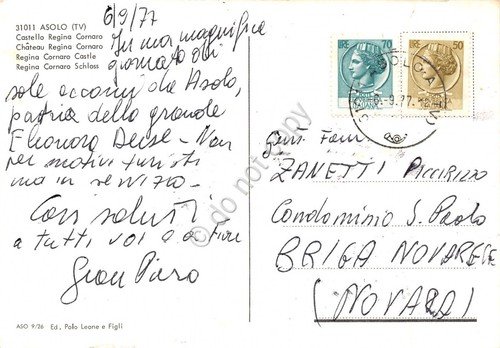 31011 ASOLO (TV)
Castello Regina Cornaro
Château Regina Cornaro
Regina Cornaro Castle
Regina Cornaro Schloss
6/9/77
In una magnifica
giornata di
sole eccomi da Asolo,
patria della grande
Eleonora Duse - Non
per motivi turisti
ma in servizio.
Cari saluti
a tutti voi e a
Gian Piero
ASO 9/26 Ed. Polo Leone e Figli
LIRE 70
LIRE 50
9.77
Gent. Fam.
ZANETTI
Condominio S. Paolo
BRIGA NOVARESE
(NOVARA)
© do not copy